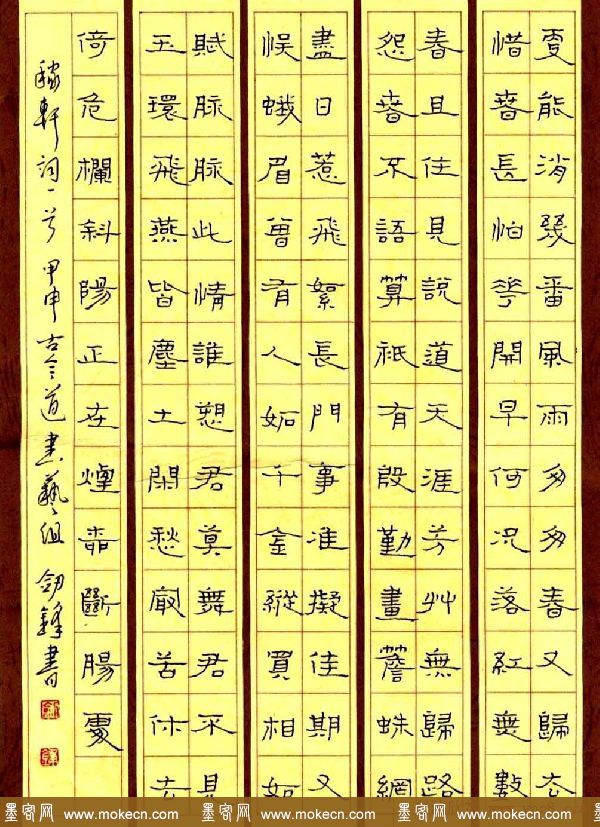 更能消幾番風雨匆匆春又歸去
惜春長怕花開早何況落紅無數
春且住見說道天涯芳艸無歸路
怨春不語算祇有殷勤畫簷蛛網
盡日惹飛絮長門事准擬佳期又
悮蛾眉曾有人妬千金縱買相如
賦脉脉此情誰愬君莫舞君不見
玉環飛燕皆塵土閑愁最苦休去
倚危欄斜陽正在煙柳斷腸處
稼軒詞一首 甲申古今道書藝組 劍鋒書
墨客网 www.mokecn.com 墨客网 www.mokecn.com 墨客网 www.mokecn.com